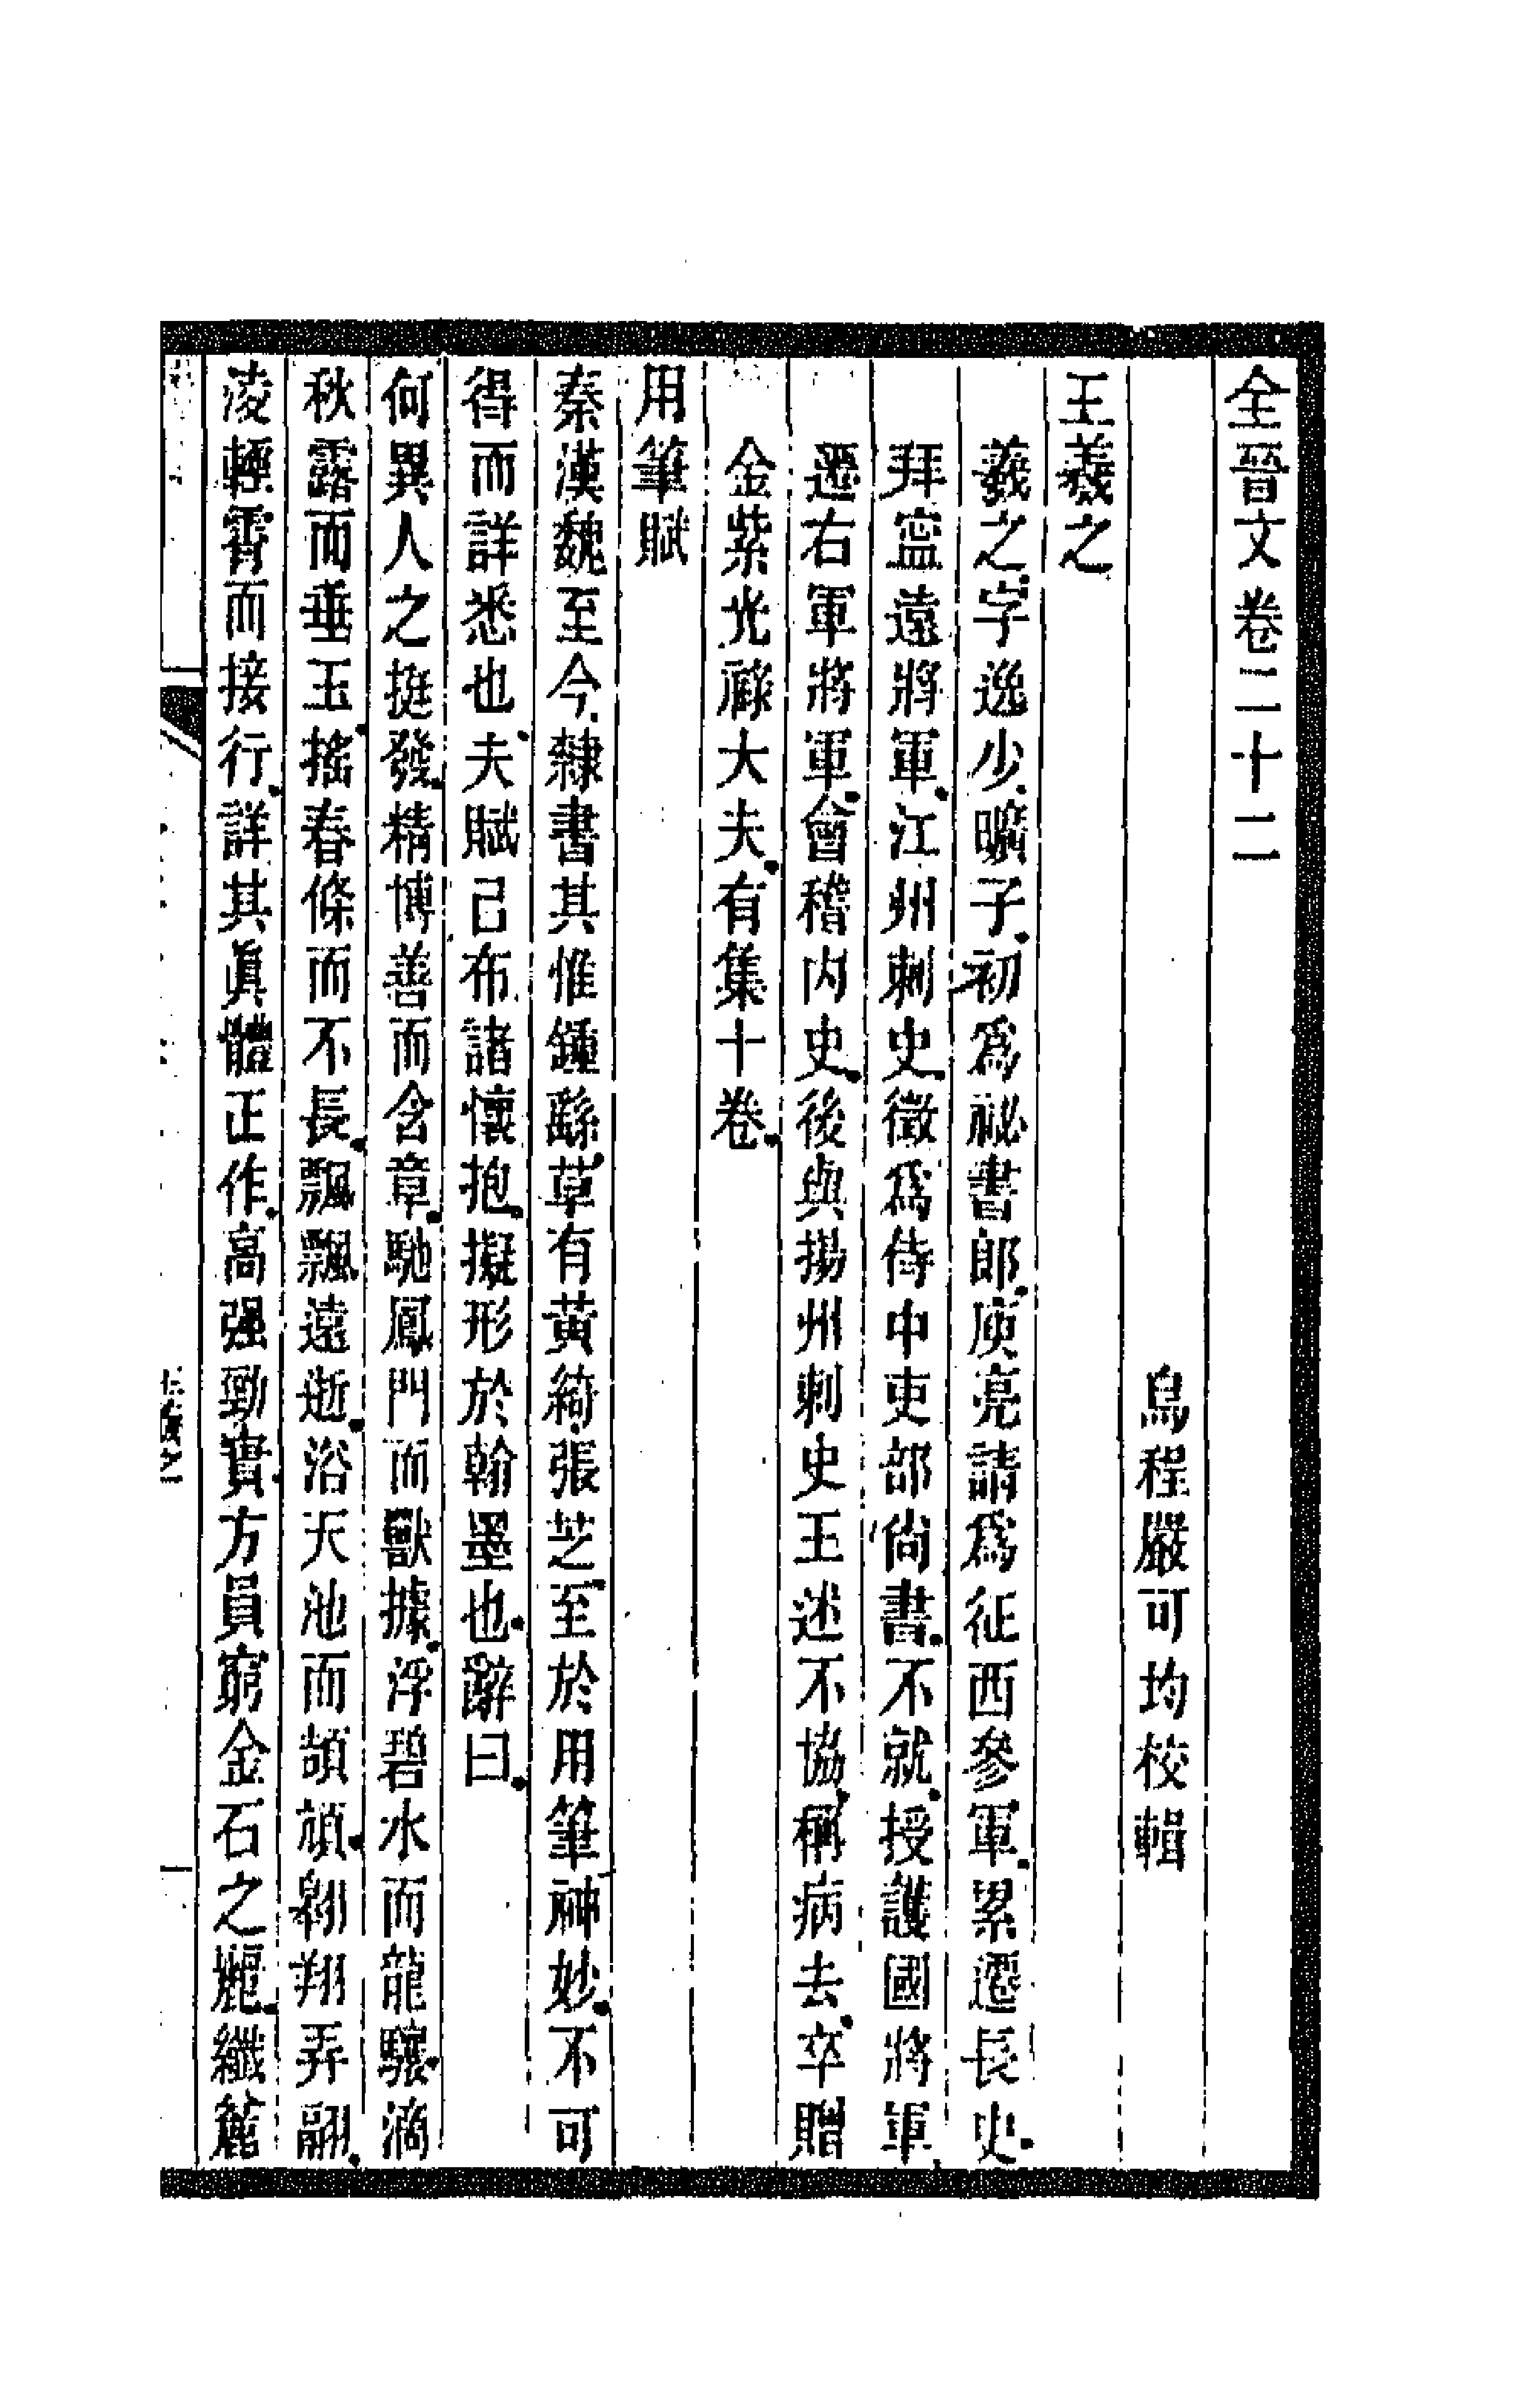 全晉文卷二十二
烏程嚴可均校輯
王羲之
羲之字逸少曠子初爲祕書郎庾亮請爲征西參軍累遷長史
拜寧遠將軍江州刺史徵爲侍中吏部尙書不就授護國將軍
遷右軍將軍會稽內史後與揚州刺史王述不協稱病去卒贈
金紫光祿大夫有集十卷
用筆賦
秦漢魏至今隸書其惟鍾繇草有黃綺張芝至於用筆神妙不可
得而詳悉也夫賦已布諸懷抱擬形於翰墨也辭曰
何異人之挺發精博善而含章馳鳳門而獸據浮碧水而龍驤滴
秋露而垂玉搖春條而不長飄飄遠逝浴天池而頡頏翱翔弄翮
淩輕霄而接行詳其眞體正作高强勁實方員窮金石之麗纖麤
王羲之
一